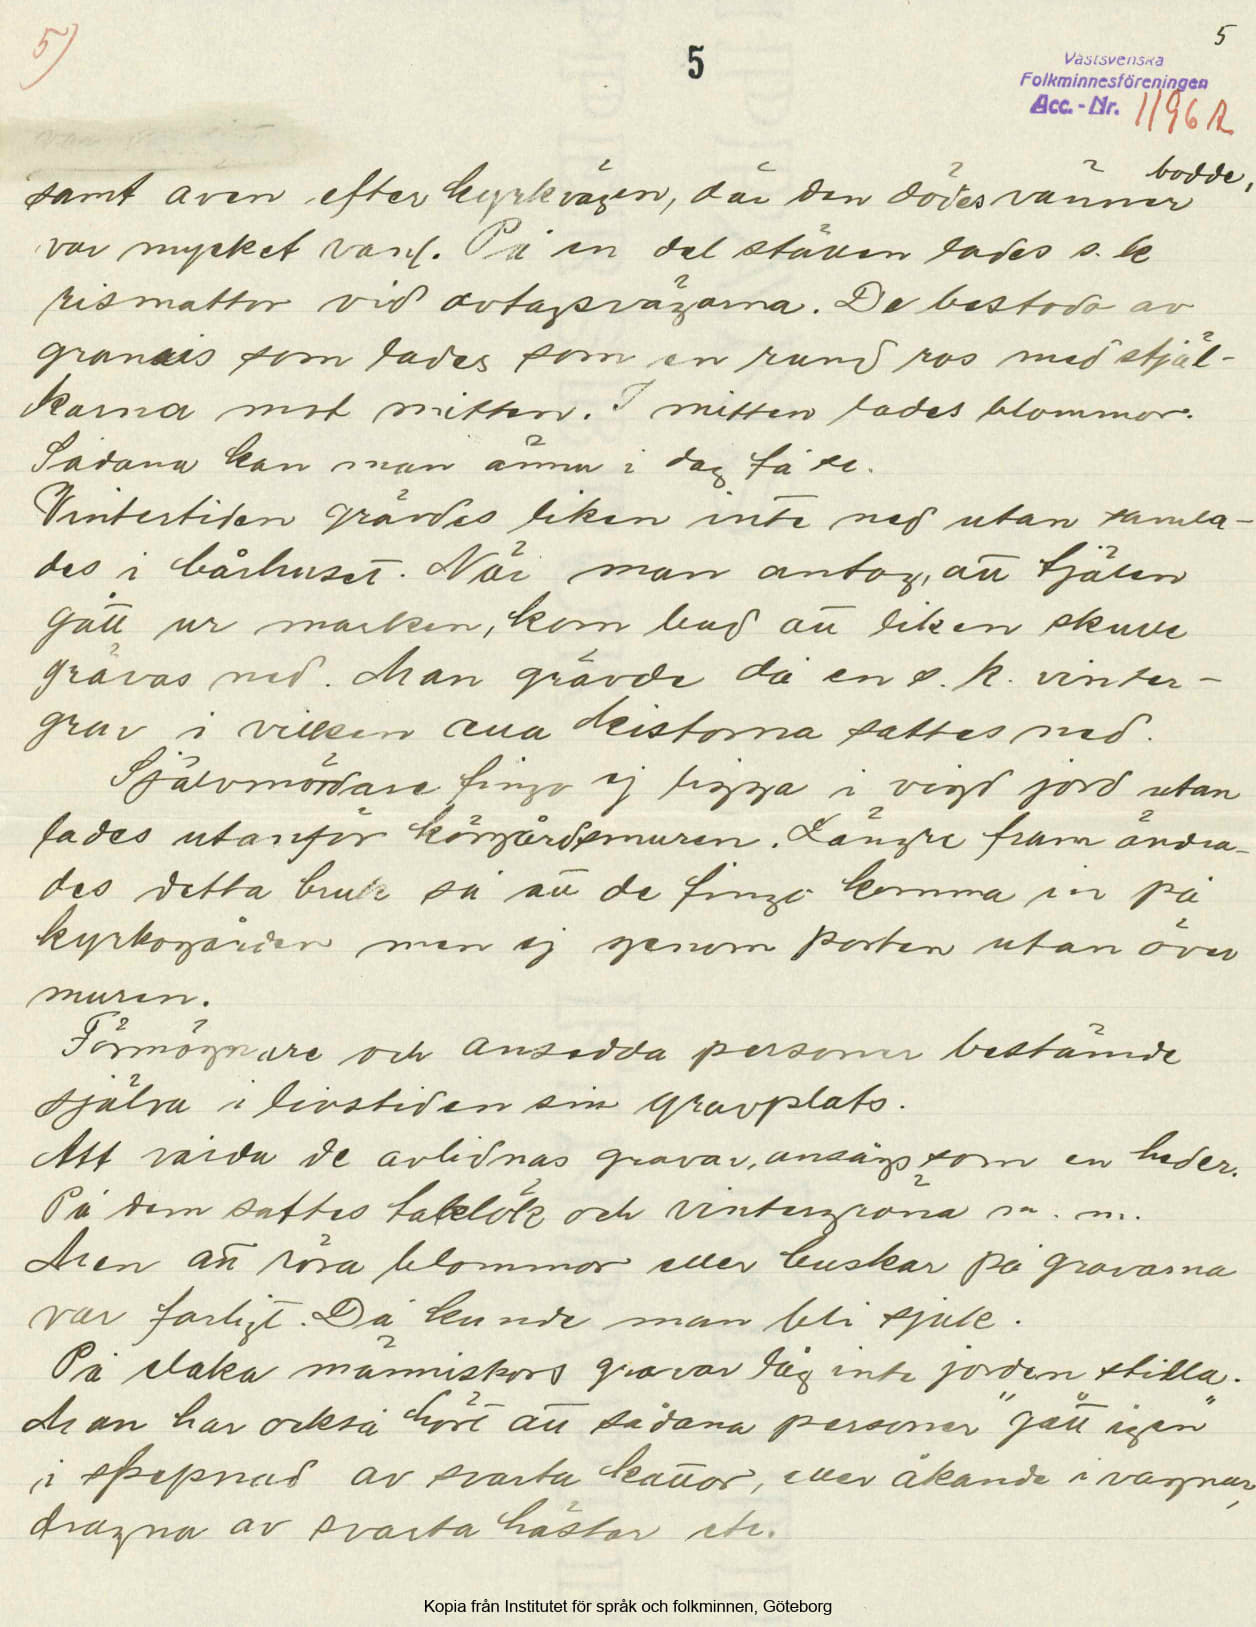 5)
5
5
Västsvenska
Folkminnesföreningen
Acc.-Nr. 1196 R
bodde,
samt även efter kyrkvägen, där den dödes vänner
var mycket vanl. På en del ställen lades s. k
rismattor vid avtagsvägarna. De bestodo av
granris som lades som en rund ros med stjäl-
karna mot mitten. I mitten lades blommor.
Sådana kan man ännu i dag få se.
Vintertiden grävdes liken inte ned utan samla-
des i bårhuset. När man antog, att tjälen
gått ur marken, kom bud att liken skulle
grävas ned. Man grävde då en s. k. vinter-
grav i vilken alla kistorna sattes ned.
Självmördare fingo ej ligga i vigd jord utan
lades utanför körgårdsmuren. Längre fram ändra-
des detta bruk så att de fingo komma in på
kyrkogården men ej genom porten utan över
muren.
Förmögnare och ansedda personer bestämde
själva i livstiden sin gravplats.
Att vårda de avlidnas gravar, ansågs som en heder.
På dem sattes taklök och vintergröna m. m.
Men att röra blommor eller buskar på gravarna
var farligt. Då kunde man bli sjuk.
På elaka människors gravar låg inte jorden stilla.
Man har också hört att sådana personer "gått igen"
i skepnad av svarta kattor, eller åkande i vagnar,
dragna av svarta hästar etc.
Kopia från Institutet för språk och folkminnen, Göteborg